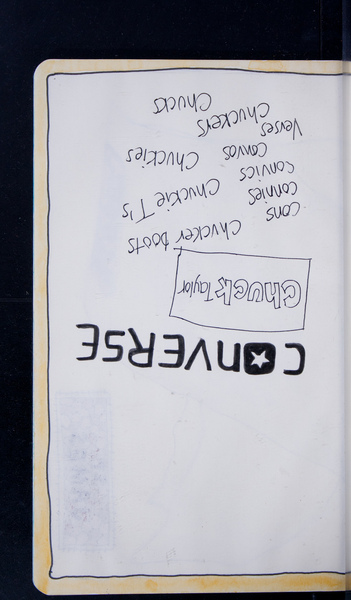 CONVERSE
Chuck Taylor
Chucker boots
cons
connies
Chuckie T's
convics
Chuckies
Convos
Verses
Chuckers
Chucks